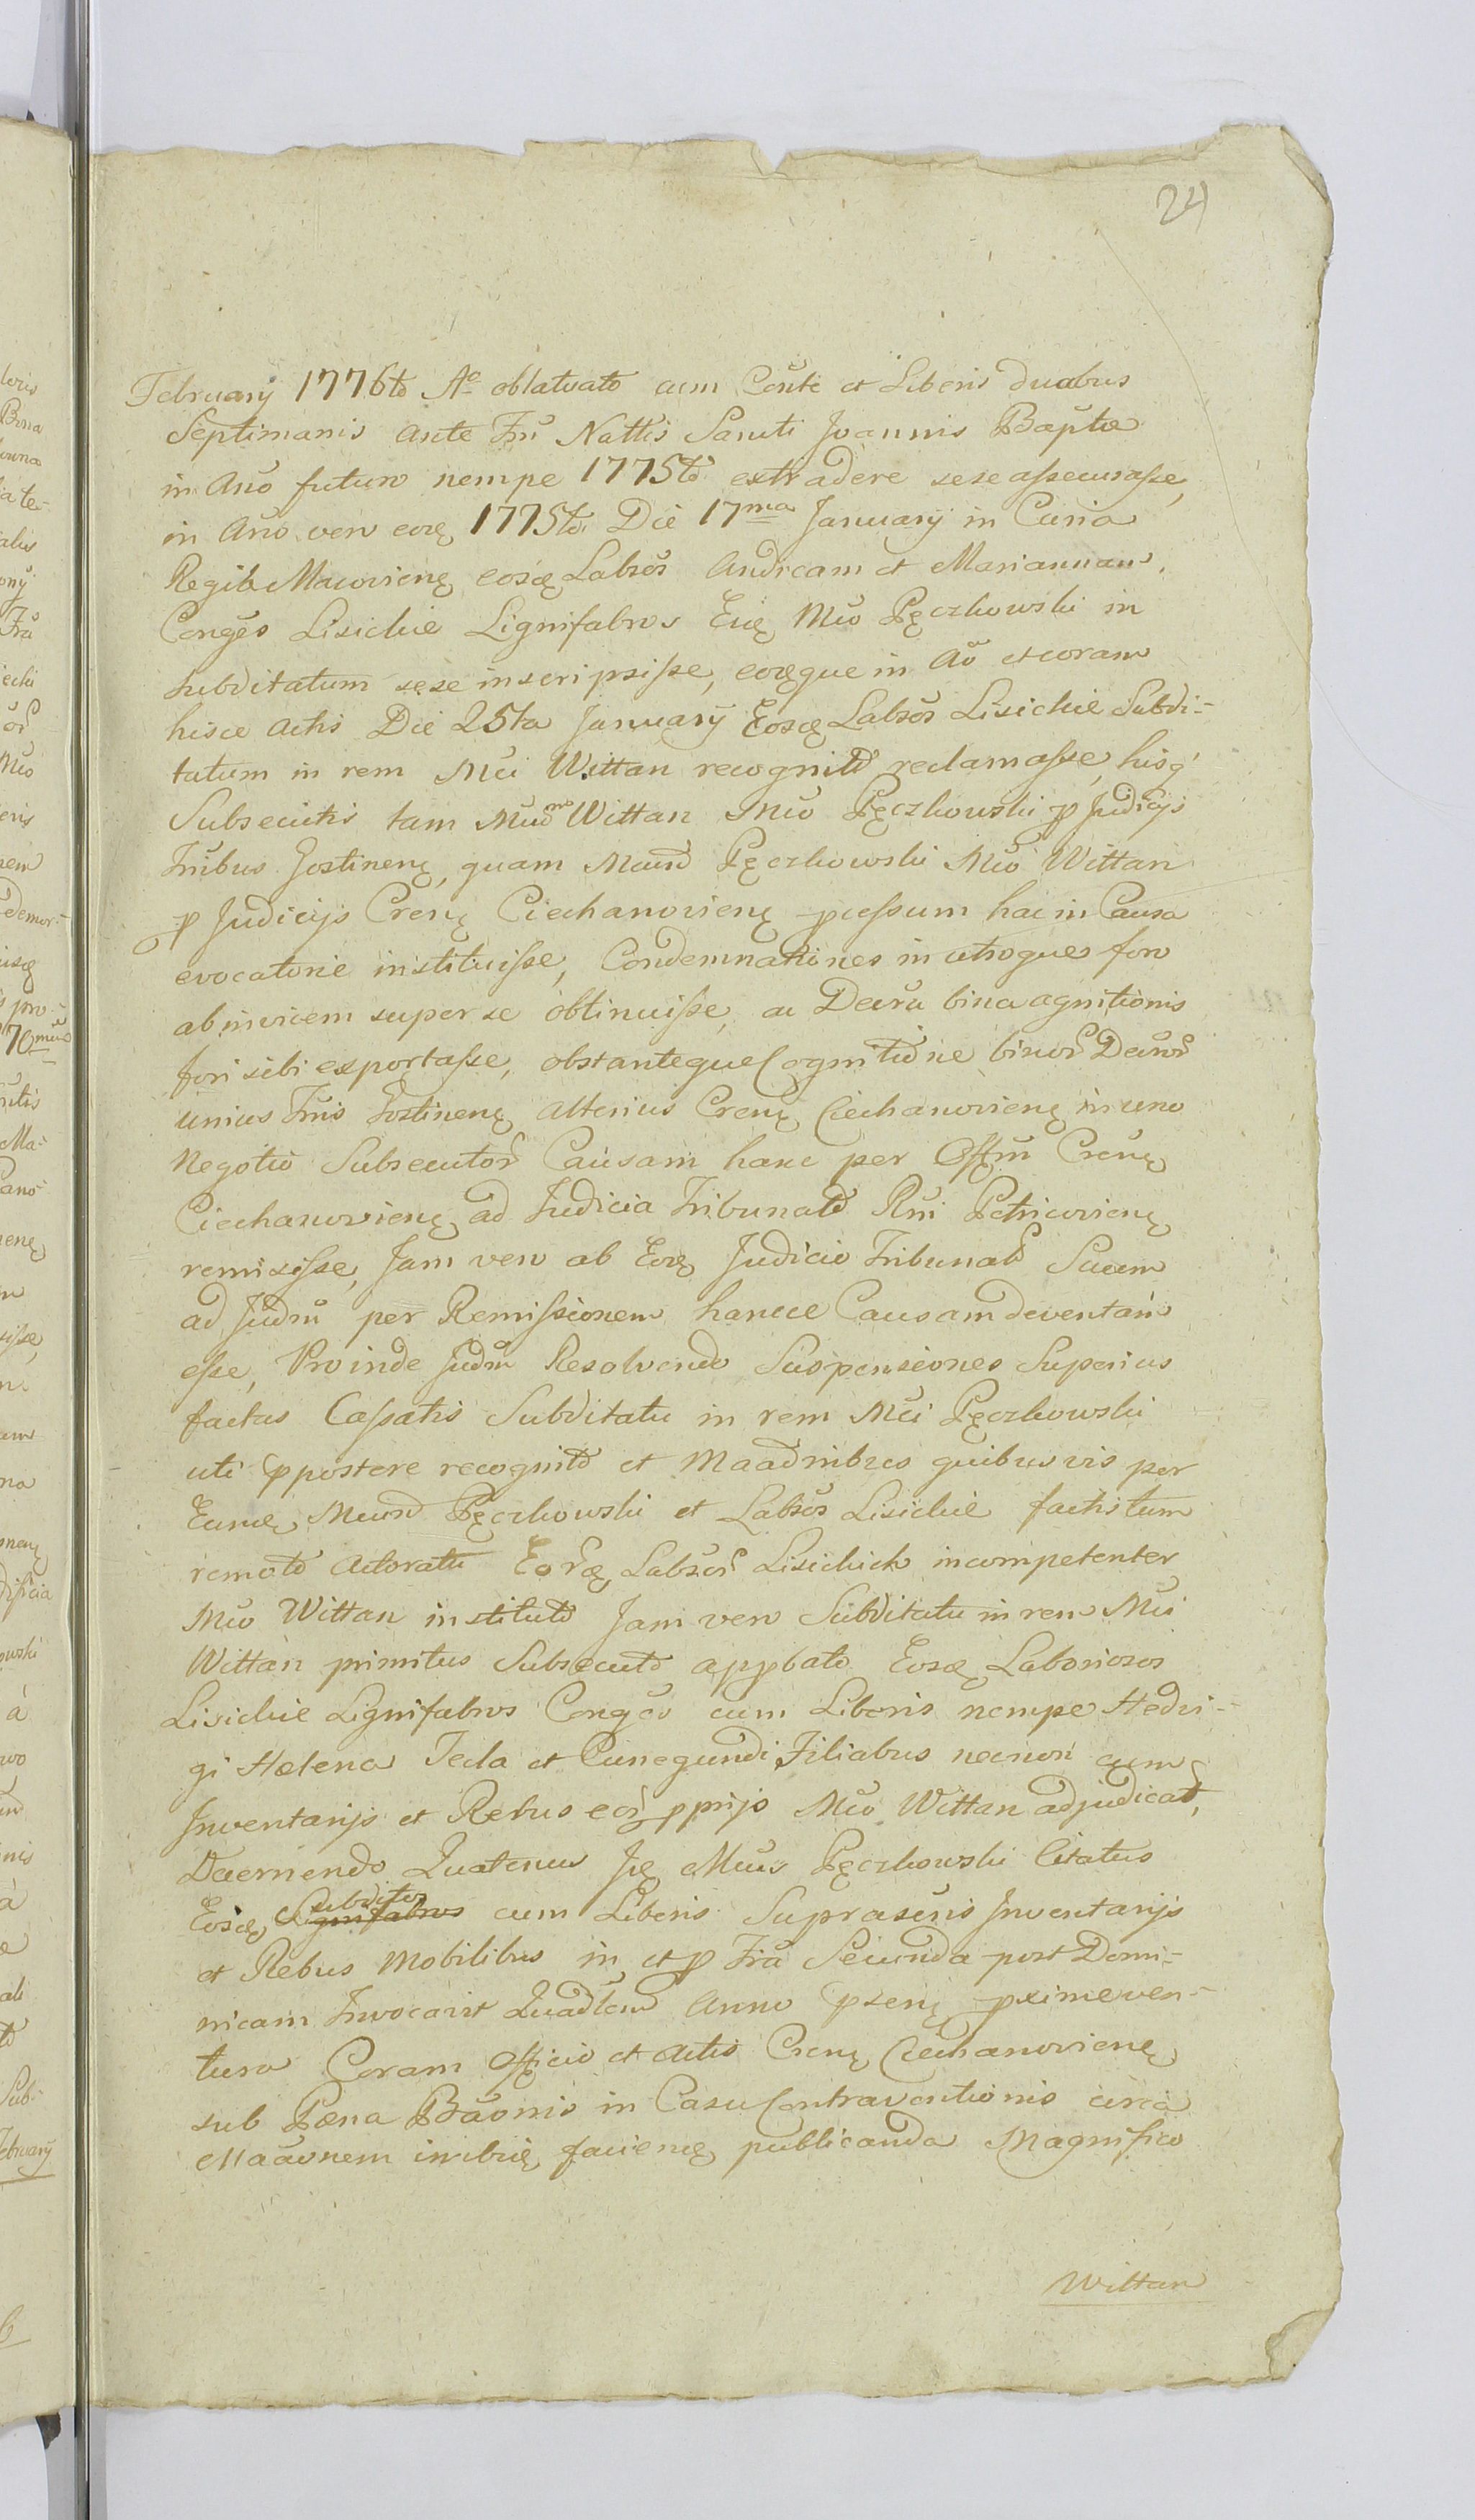 24
February 1776to Ao oblatuato cum Conte et Liberis duabus
Septimanis ante Fm̃ Nattis Sancti Joannis Baptæ
in Año futuro nempe 1775to extradere sese assecurasse,
in Año vero eoꝫ 1775to Die 17ma January in Curia
Regili Macovienꝫ eosꝫ Labsõs Andream et Mariannam
Conges Lisichie Lignifabros Eiꝫ Mco Pęczkowski in
Subditatum sese inscripsisse, eoꝫque in Ao et coram
hisce Actis Die 25ta January Eosꝫ Labsõs Lisichie Subdi-
tatum in rem Mci Wittan recognitū reclamasse, hisq
Subsecutis tam Mcūmo Wittan Mco Pęczkowski p Judicijs
Tribus Gostinenꝫ, quam Mcus Pęczkowski Mco Wittan
p Judicijs Crenꝫ Ciechanovienꝫ pcessum hac in Causa
evocatorie instituisse, Condemnationes in utroque foro
ab invicem super se obtinuisse, ac Decra bina agnitionis
fori sibi exportasse, obstanteque Cognitione binor Decror
unius Trnis Gostinenꝫ alterius Crenꝫ Ciechanovienꝫ in uno
Negotio Subsecutor Causam hanc per Offm Crenꝫ
Ciechanovienꝫ ad Judicia Tribunalo Rni Petricovienꝫ
remisisse, Jam vero ab Eoꝫ Judicio Tribunalo Suum
ad Judm per Remissionem hancce Causam deventam
esse, Proinde Judm Resolvendo Suspensiones Superius
factas Cassatis Subditatu in rem Mci Pęczkowski
uti ppostere recognito et Maãdnibus quibusvis per
Eumꝫ Mcum Pęczkowski et Labsõs Lisichie factis tum
remoto Actoratu Eorꝫ Labsor Lisichich incompetenter
Mco Wittan instituto Jam vero Subditatu in rem Mci
Wittan primitus Subsecuto appbato Eosꝫ Laboriosos
Lisichie Lignifabros Conges cum Liberis nempe Hedvi-
gi Helena Tecla et Cunegundi Filiabus necnon cum
Inventarijs et Rebus eor pprijs Mco Wittan adjudicat,
Decernendo Quatenus Jꝫ Mcus Pęczkowski Citatus
Eosꝫ subditos cum Liberis Suprasenis Inventarijs
et Rebus Mobilibus in et p Fria Secunda post Domi-
nicam Invocavit Quadlem Anno psenꝫ pximeven-
tura Coram Officio et Actis Crenꝫ Ciechanovienꝫ
sub Pæna Bãonis in Casu Contraventionis circa
Maãonem inibiꝫ faciendꝫ publicanda Magnifico
Wittan